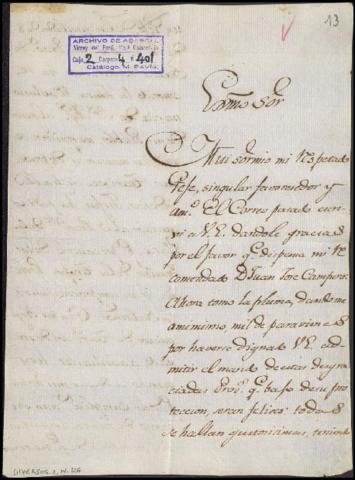 13
ARCHIVO DE ABASCAL
Virrey del Perú, 
Caja, 2 Carpeta 4 Nº 40
Catálogo M. Pavía.
Exmo Sor
Mui sor mio mi Respetado
Gefe, singular favorecedor y
amº. El Correo pasado escri
vi a V.E. dandole gracias
por el favor qe. dispensa mi Re
comendado Dn. Juan Jose Campero:
Ahora tomo la pluma, dandome
a mi mismo, mil de paravienes
por haverse dignado V.E. ad
mitir el mando de estas desgra
ciadas Provs. qe. bajo de su pro
teccion, seran felices: todas
se hallan quietisimas, teniend
DIVERSOS. 2, N.